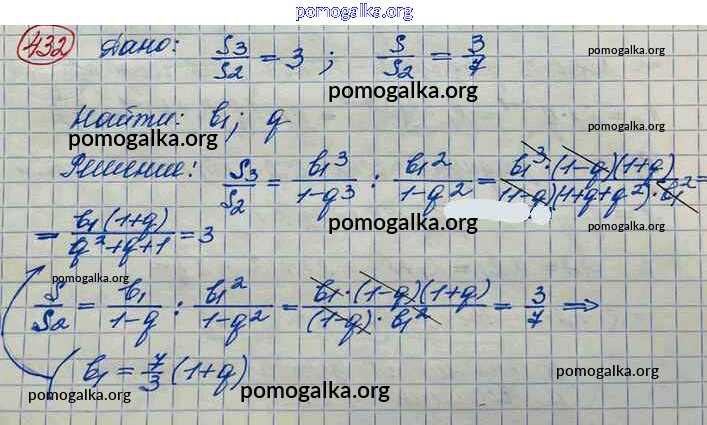 pomogalka.org
432 Дано: S3/S2 = 3 ; S/S2 = 3/7
pomogalka.org
pomogalka.org
Найти: b₁; q
pomogalka.org
pomogalka.org
Решение: S3/S2 = b₁³/(1-q³) : b₁²/(1-q²) = b₁³·(1-q)(1+q)/((1-q)(1+q+q²)·b₁²) =
pomogalka.org
pomogalka.org
= b₁(1+q)/(q²+q+1) = 3
pomogalka.org
S/S2 = b₁/(1-q) : b₁²/(1-q²) = b₁·(1-q)(1+q)/((1-q)·b₁²) = 3/7 ⇒
b₁ = 7/3 (1+q)
pomogalka.org
pomogalka.org
pomogalka.org